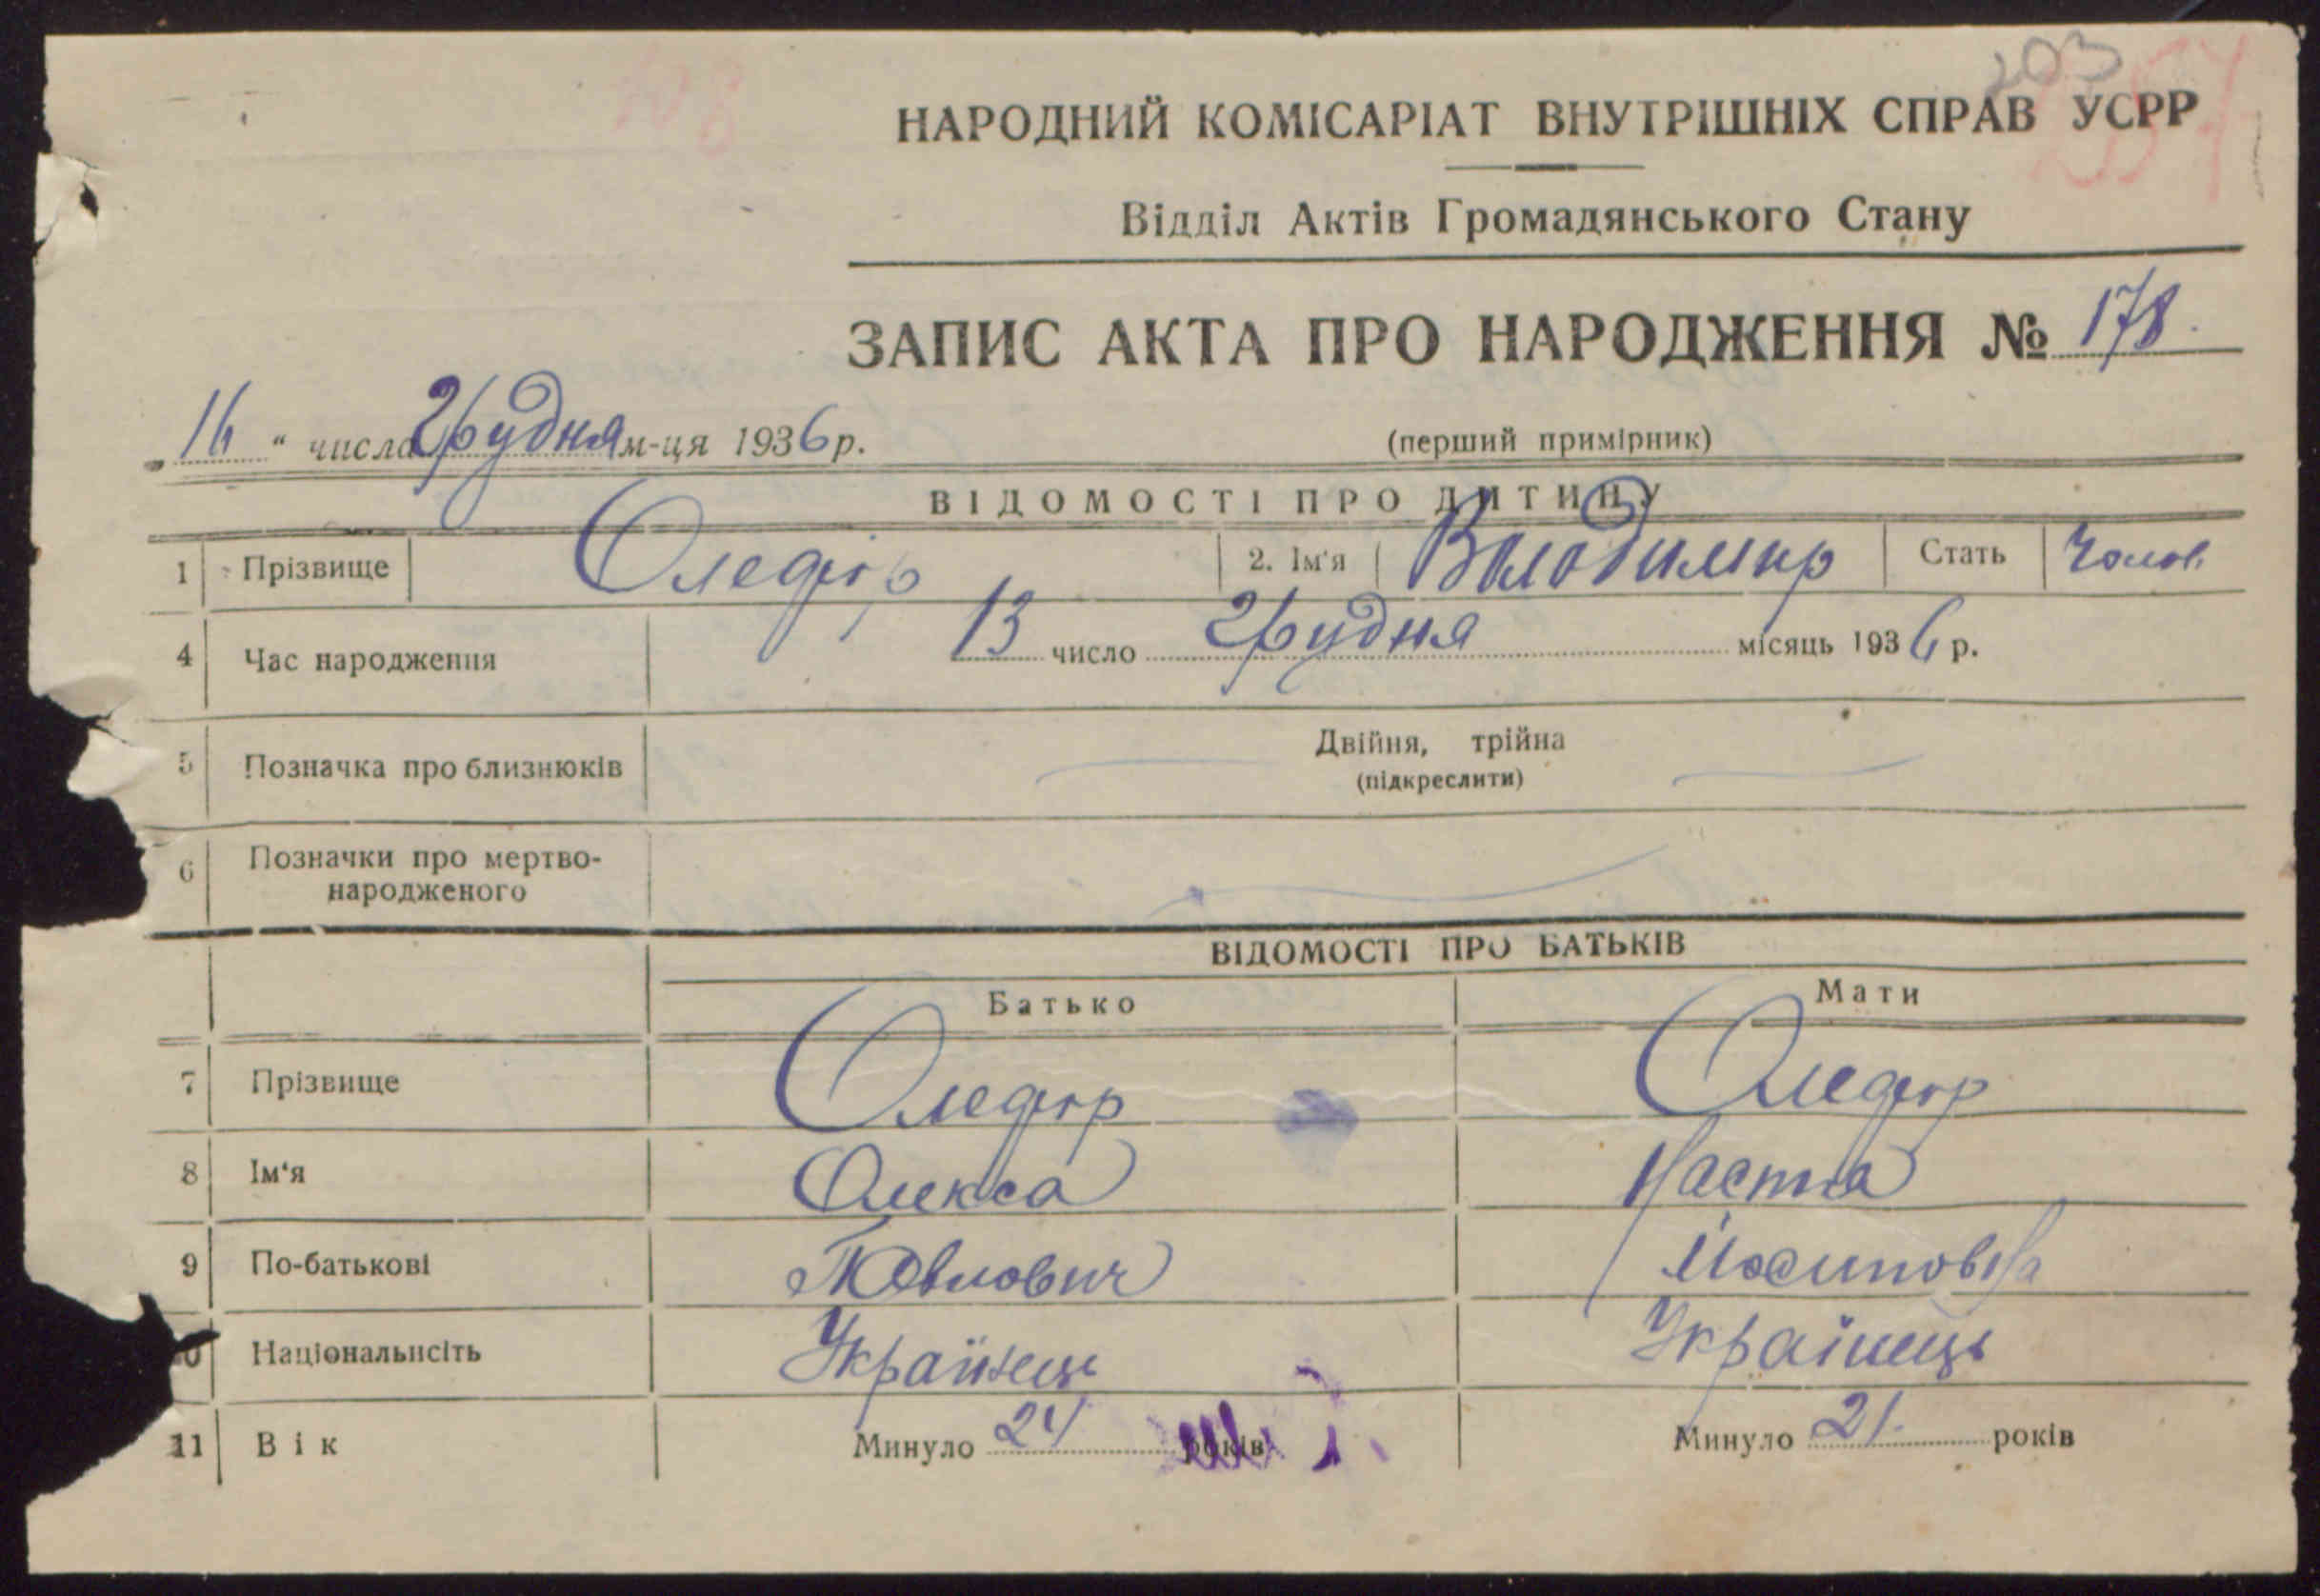 203
108
НАРОДНИЙ КОМІСАРІАТ ВНУТРІШНІХ СПРАВ УСРР
Відділ Актів Громадянського Стану
ЗАПИС АКТА ПРО НАРОДЖЕННЯ № 178.
„16“ числа Грудня м-ця 1936 р.
(перший примірник)
ВІДОМОСТІ ПРО ДИТИНУ
1 Прізвище Олефір 2. Ім'я Володимир Стать Чолов.
4 Час народження 13 число Грудня місяць 1936 р.
5 Позначка про близнюків Двійня, трійна
(підкреслити)
6 Позначки про мертво-
народженого
ВІДОМОСТІ ПРО БАТЬКІВ
Батько Мати
7 Прізвище Олефір Олефір
8 Ім‘я Олекса Настя
9 По-батькові Павлович Йосиповна
10 Національнсіть Українець Українець
11 Вік Минуло 24 років Минуло 21. років